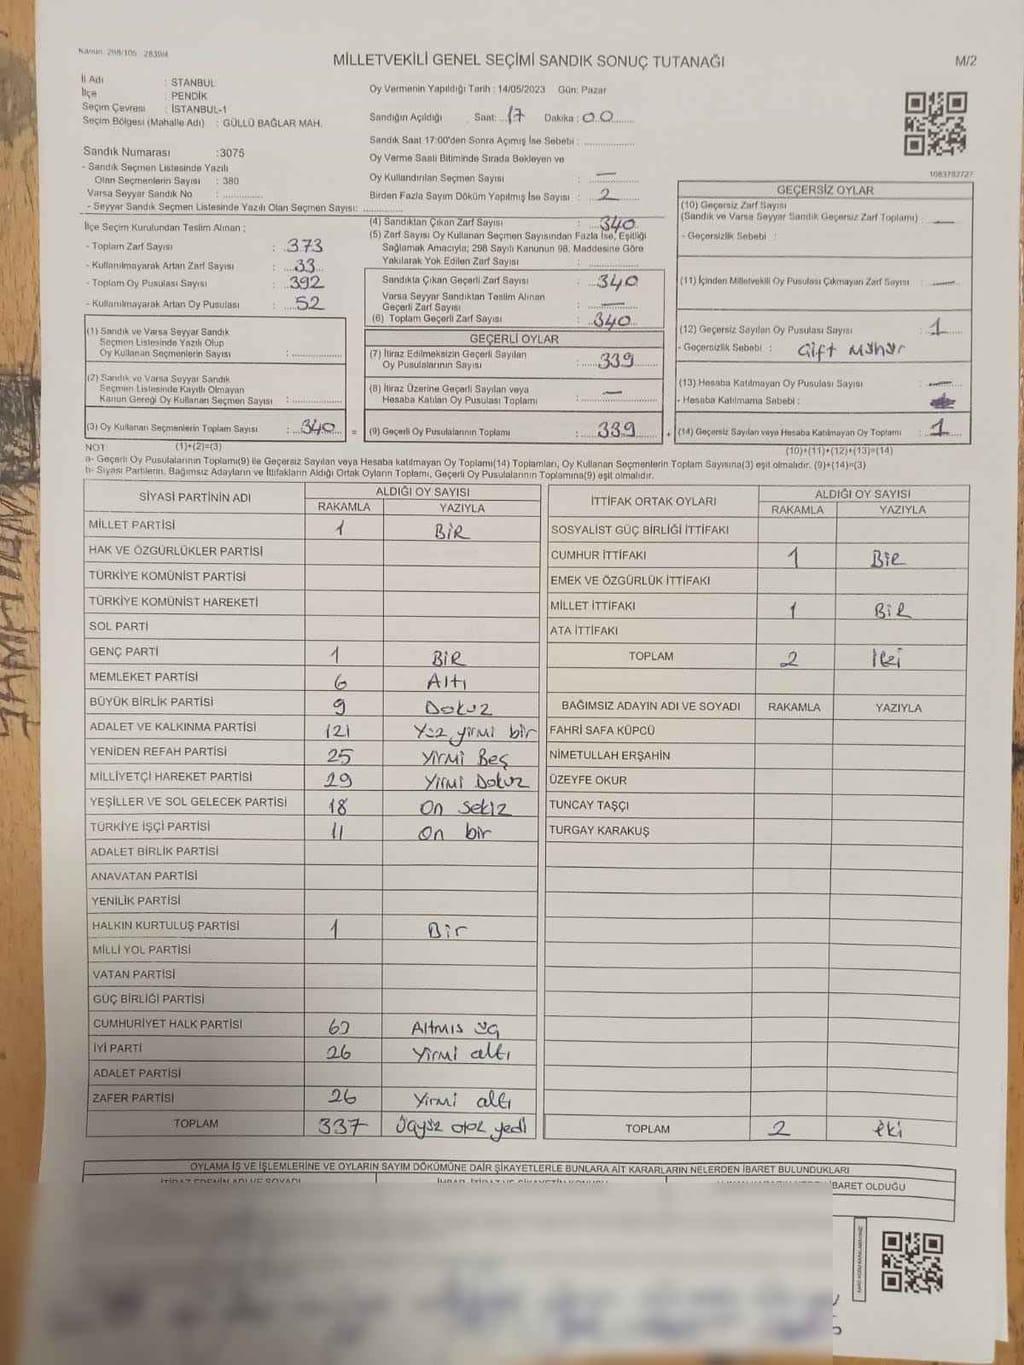 Kanun 298/105 2839/4
MİLLETVEKİLİ GENEL SEÇİMİ SANDIK SONUÇ TUTANAĞI
M/2
İl Adı : STANBUL
İlçe : PENDİK
Seçim Çevresi : İSTANBUL-1
Seçim Bölgesi (Mahalle Adı) : GÜLLÜ BAĞLAR MAH.
Sandık Numarası :3075
- Sandık Seçmen Listesinde Yazılı
Olan Seçmenlerin Sayısı : 380
Varsa Seyyar Sandık No :
- Seyyar Sandık Seçmen Listesinde Yazılı Olan Seçmen Sayısı:
Oy Vermenin Yapıldığı Tarih : 14/05/2023 Gün: Pazar
Sandığın Açıldığı Saat: 17 Dakika : 00
Sandık Saat 17:00'den Sonra Açımış İse Sebebi :
Oy Verme Saati Bitiminde Sırada Bekleyen ve
Oy Kullandırılan Seçmen Sayısı : —
Birden Fazla Sayım Döküm Yapılmış İse Sayısı : 2
1083782727
İlçe Seçim Kurulundan Teslim Alınan ;
- Toplam Zarf Sayısı : 373
- Kullanılmayarak Artan Zarf Sayısı : 33
- Toplam Oy Pusulası Sayısı : 392
- Kullanılmayarak Artan Oy Pusulası : 52
(1) Sandık ve Varsa Seyyar Sandık
Seçmen Listesinde Yazılı Olup
Oy Kullanan Seçmenlerin Sayısı :
(2) Sandık ve Varsa Seyyar Sandık
Seçmen Listesinde Kayıtlı Olmayan
Kanun Gereği Oy Kullanan Seçmen Sayısı :
(3) Oy Kullanan Seçmenlerin Toplam Sayısı : 340 =
(4) Sandıktan Çıkan Zarf Sayısı : 340
(5) Zarf Sayısı Oy Kullanan Seçmen Sayısından Fazla İse, Eşitliği
Sağlamak Amacıyla; 298 Sayılı Kanunun 98. Maddesine Göre
Yakılarak Yok Edilen Zarf Sayısı :
Sandıkta Çıkan Geçerli Zarf Sayısı : 340
Varsa Seyyar Sandıktan Teslim Alınan
Geçerli Zarf Sayısı : —
(6) Toplam Geçerli Zarf Sayısı : 340
GEÇERLİ OYLAR
(7) İtiraz Edilmeksizin Geçerli Sayılan
Oy Pusulalarının Sayısı : 339
(8) İtiraz Üzerine Geçerli Sayılan veya
Hesaba Katılan Oy Pusulası Toplamı : —
(9) Geçerli Oy Pusulalarının Toplamı : 339 +
GEÇERSİZ OYLAR
(10) Geçersiz Zarf Sayısı
(Sandık ve Varsa Seyyar Sandık Geçersiz Zarf Toplamı) : —
- Geçersizlik Sebebi :
(11) İçinden Milletvekili Oy Pusulası Çıkmayan Zarf Sayısı : —
(12) Geçersiz Sayılan Oy Pusulası Sayısı : 1
- Geçersizlik Sebebi : Çift Mühür
(13) Hesaba Katılmayan Oy Pusulası Sayısı : —
- Hesaba Katılmama Sebebi :
(14) Geçersiz Sayılan veya Hesaba Katılmayan Oy Toplamı : 1
NOT: (1)+(2)=(3)
(10)+(11)+(12)+(13)=(14)
a- Geçerli Oy Pusulalarının Toplamı(9) ile Geçersiz Sayılan veya Hesaba katılmayan Oy Toplamı(14) Toplamları, Oy Kullanan Seçmenlerin Toplam Sayısına(3) eşit olmalıdır. (9)+(14)=(3)
b- Siyasi Partilerin, Bağımsız Adayların ve İttifakların Aldığı Ortak Oyların Toplamı, Geçerli Oy Pusulalarının Toplamına(9) eşit olmalıdır.
SİYASİ PARTİNİN ADI ALDIĞI OY SAYISI
RAKAMLA YAZIYLA
MİLLET PARTİSİ 1 BİR
HAK VE ÖZGÜRLÜKLER PARTİSİ
TÜRKİYE KOMÜNİST PARTİSİ
TÜRKİYE KOMÜNİST HAREKETİ
SOL PARTİ
GENÇ PARTİ 1 BİR
MEMLEKET PARTİSİ 6 Altı
BÜYÜK BİRLİK PARTİSİ 9 Dokuz
ADALET VE KALKINMA PARTİSİ 121 Yüz yirmi bir
YENİDEN REFAH PARTİSİ 25 Yirmi Beş
MİLLİYETÇİ HAREKET PARTİSİ 29 Yirmi Dokuz
YEŞİLLER VE SOL GELECEK PARTİSİ 18 On Sekiz
TÜRKİYE İŞÇİ PARTİSİ 11 On bir
ADALET BİRLİK PARTİSİ
ANAVATAN PARTİSİ
YENİLİK PARTİSİ
HALKIN KURTULUŞ PARTİSİ 1 Bir
MİLLİ YOL PARTİSİ
VATAN PARTİSİ
GÜÇ BİRLİĞİ PARTİSİ
CUMHURİYET HALK PARTİSİ 63 Altmıs üç
İYİ PARTİ 26 Yirmi altı
ADALET PARTİSİ
ZAFER PARTİSİ 26 Yirmi altı
TOPLAM 337 Üçyüz otuz yedi
İTTİFAK ORTAK OYLARI ALDIĞI OY SAYISI
RAKAMLA YAZIYLA
SOSYALİST GÜÇ BİRLİĞİ İTTİFAKI
CUMHUR İTTİFAKI 1 Bir
EMEK VE ÖZGÜRLÜK İTTİFAKI
MİLLET İTTİFAKI 1 Bir
ATA İTTİFAKI
TOPLAM 2 İki
BAĞIMSIZ ADAYIN ADI VE SOYADI RAKAMLA YAZIYLA
FAHRİ SAFA KÜPCÜ
NİMETULLAH ERŞAHİN
ÜZEYFE OKUR
TUNCAY TAŞÇI
TURGAY KARAKUŞ
TOPLAM 2 iki
OYLAMA İŞ VE İŞLEMLERİNE VE OYLARIN SAYIM DÖKÜMÜNE DAİR ŞİKAYETLERLE BUNLARA AİT KARARLARIN NELERDEN İBARET BULUNDUKLARI
İBARET OLDUĞU